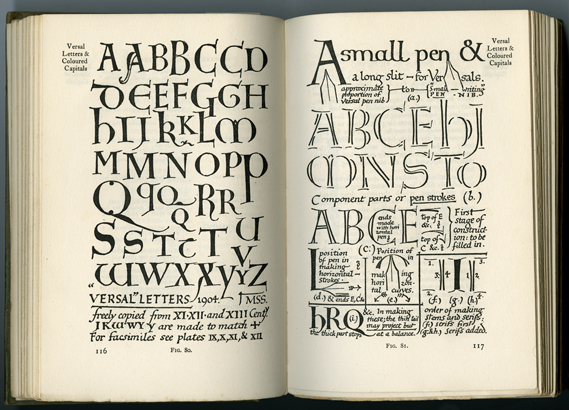 Versal
Letters &
Coloured
Capitals
AABBCCD
DEEFGGH
hIIJkKLM
MMNOPP
QqQRR
SSTTUV
WWXXYYZ
"VERSAL" LETTERS, 1904. — J MSS.
freely copied from XI·XII·and XIII Centy
JKWWYY are made to match +
For facsimiles see plates IX, X, XI, & XII
116
FIG. 80.
Versal
Letters &
Coloured
Capitals
A small pen &
a long slit — for Versals.
approximate
proportion of
Versal pen nib
to
small
PEN
writing
NIB.
(a.)
ABCEhJ
MNSTO
Component parts or pen strokes (b.)
ABCE
ends
made
with hori
zontal
pen
Top of E
&c.
top of C
&c.
First
stage of
construct-
ion: to be
filled in.
position
of pen in
making
horizontal
strokes.
(d.) & ends E, C &c
(c.) Position of
pen in
making
horizontal
curves.
(e.)
1.
2.
3
4
(f.) (g.) (h)
order of making
stems and serifs.
(f.) strifs first
(g&h.) Serifs added.
hRQ
(i.)
&c. In making
these; the thin tail
may project but
the thick part stops
at a balance.
FIG. 81.
117